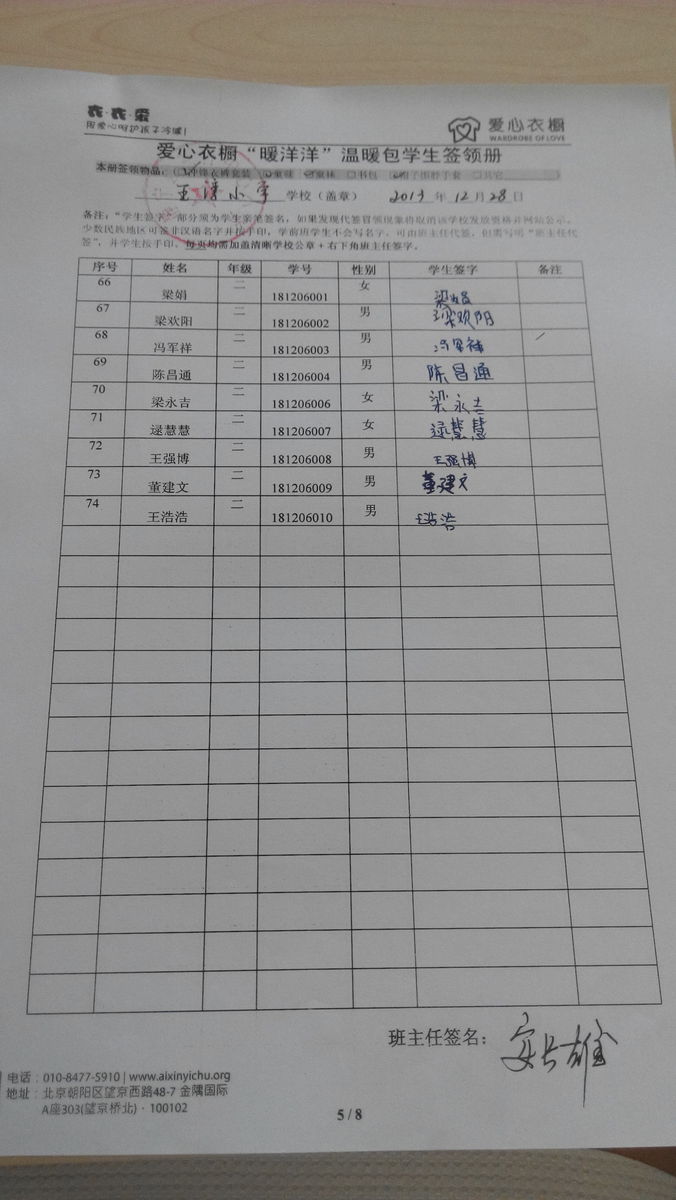 衣·衣·爱
用爱心呵护孩子冷暖!
爱心衣橱
WARDROBE OF LOVE
爱心衣橱“暖洋洋”温暖包学生签领册
本册签领物品：
书包
其它
小学 学校（盖章） 2013 年 12 月 28 日
备注：“学生签字”部分须为学生亲笔签名，如果发现代签冒领现象将取消该学校发放资格并网站公示。
少数民族地区可签非汉语名字并按手印，学前班学生不会写名字，可由班主任代签，但需写明“班主任代
签”，并学生按手印，每页均需加盖清晰学校公章+右下角班主任签字。
序号 姓名 年级 学号 性别 学生签字 备注
66 梁娟 二 181206001 女 梁娟
67 梁欢阳 二 181206002 男 梁欢阳
68 冯军祥 二 181206003 男 冯军祥
69 陈昌通 二 181206004 男 陈昌通
70 梁永吉 二 181206006 女 梁永吉
71 逯慧慧 二 181206007 女 逯慧慧
72 王强博 二 181206008 男 王强博
73 董建文 二 181206009 男 董建文
74 王浩浩 二 181206010 男 王浩浩
班主任签名：
电话：010-8477-5910 | www.aixinyichu.org
地址：北京朝阳区望京西路48-7 金隅国际
A座303(望京桥北)·100102
5 / 8